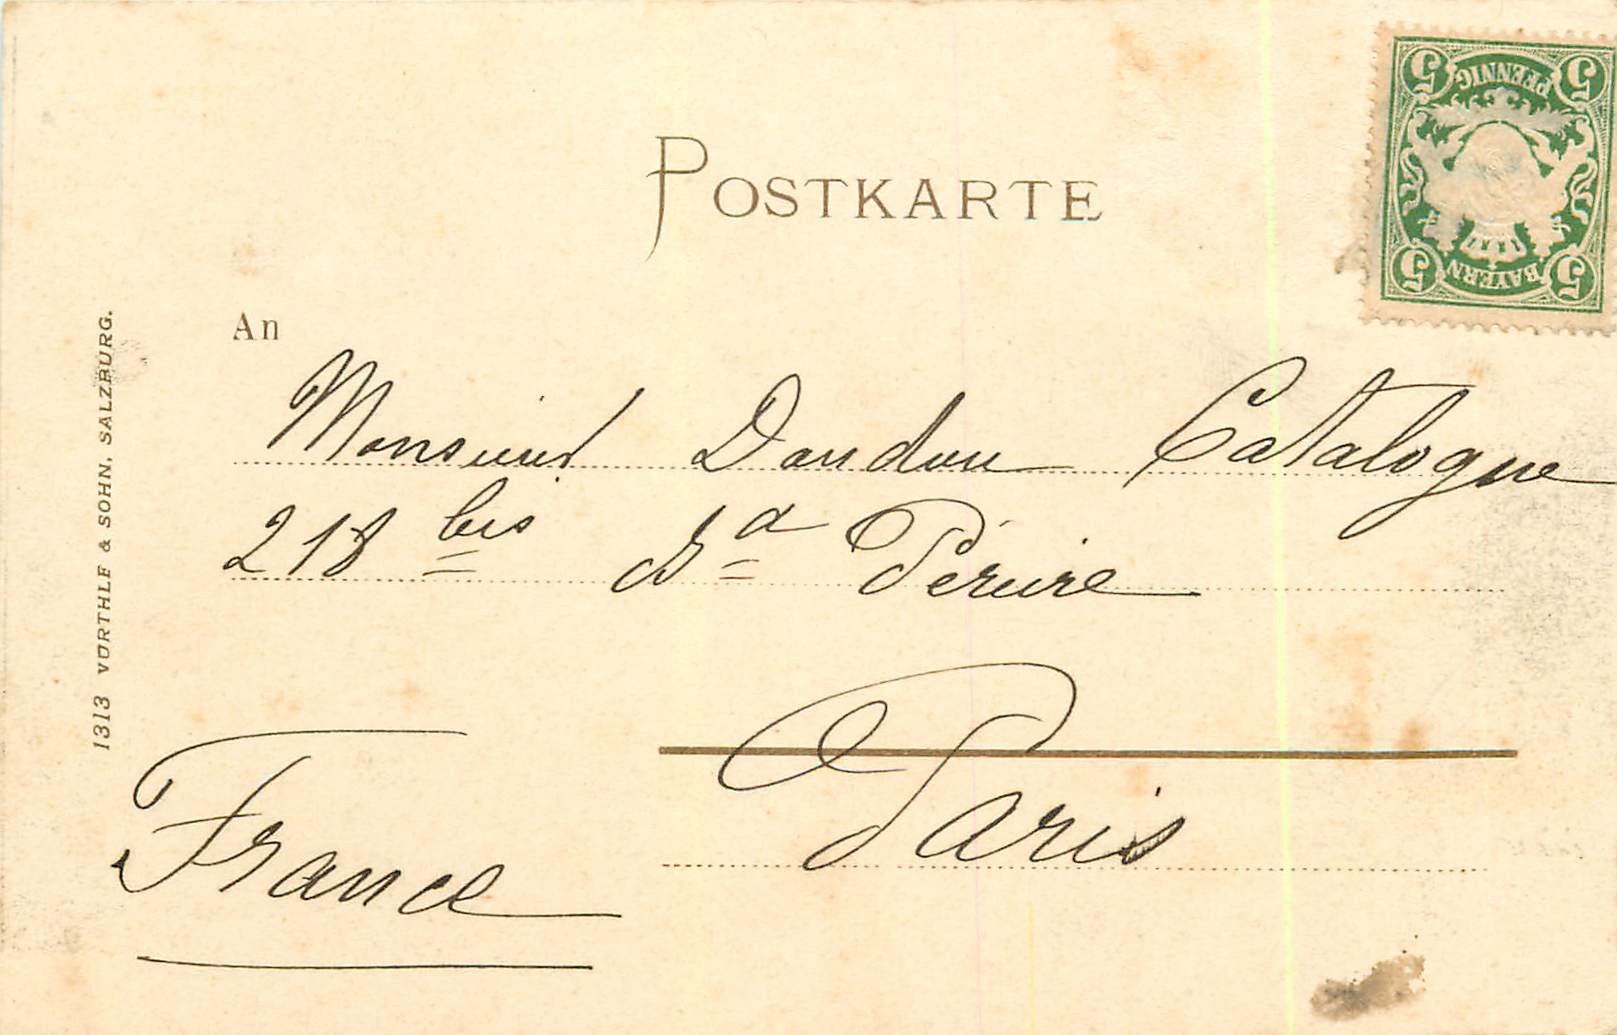 POSTKARTE
5 PFENNIG 5
5 BAYERN 5
An
Monsieur Dandou Catalogue
218 bis Bd Péreire
Paris
France
1313 VÜRTHLE & SOHN, SALZBURG.